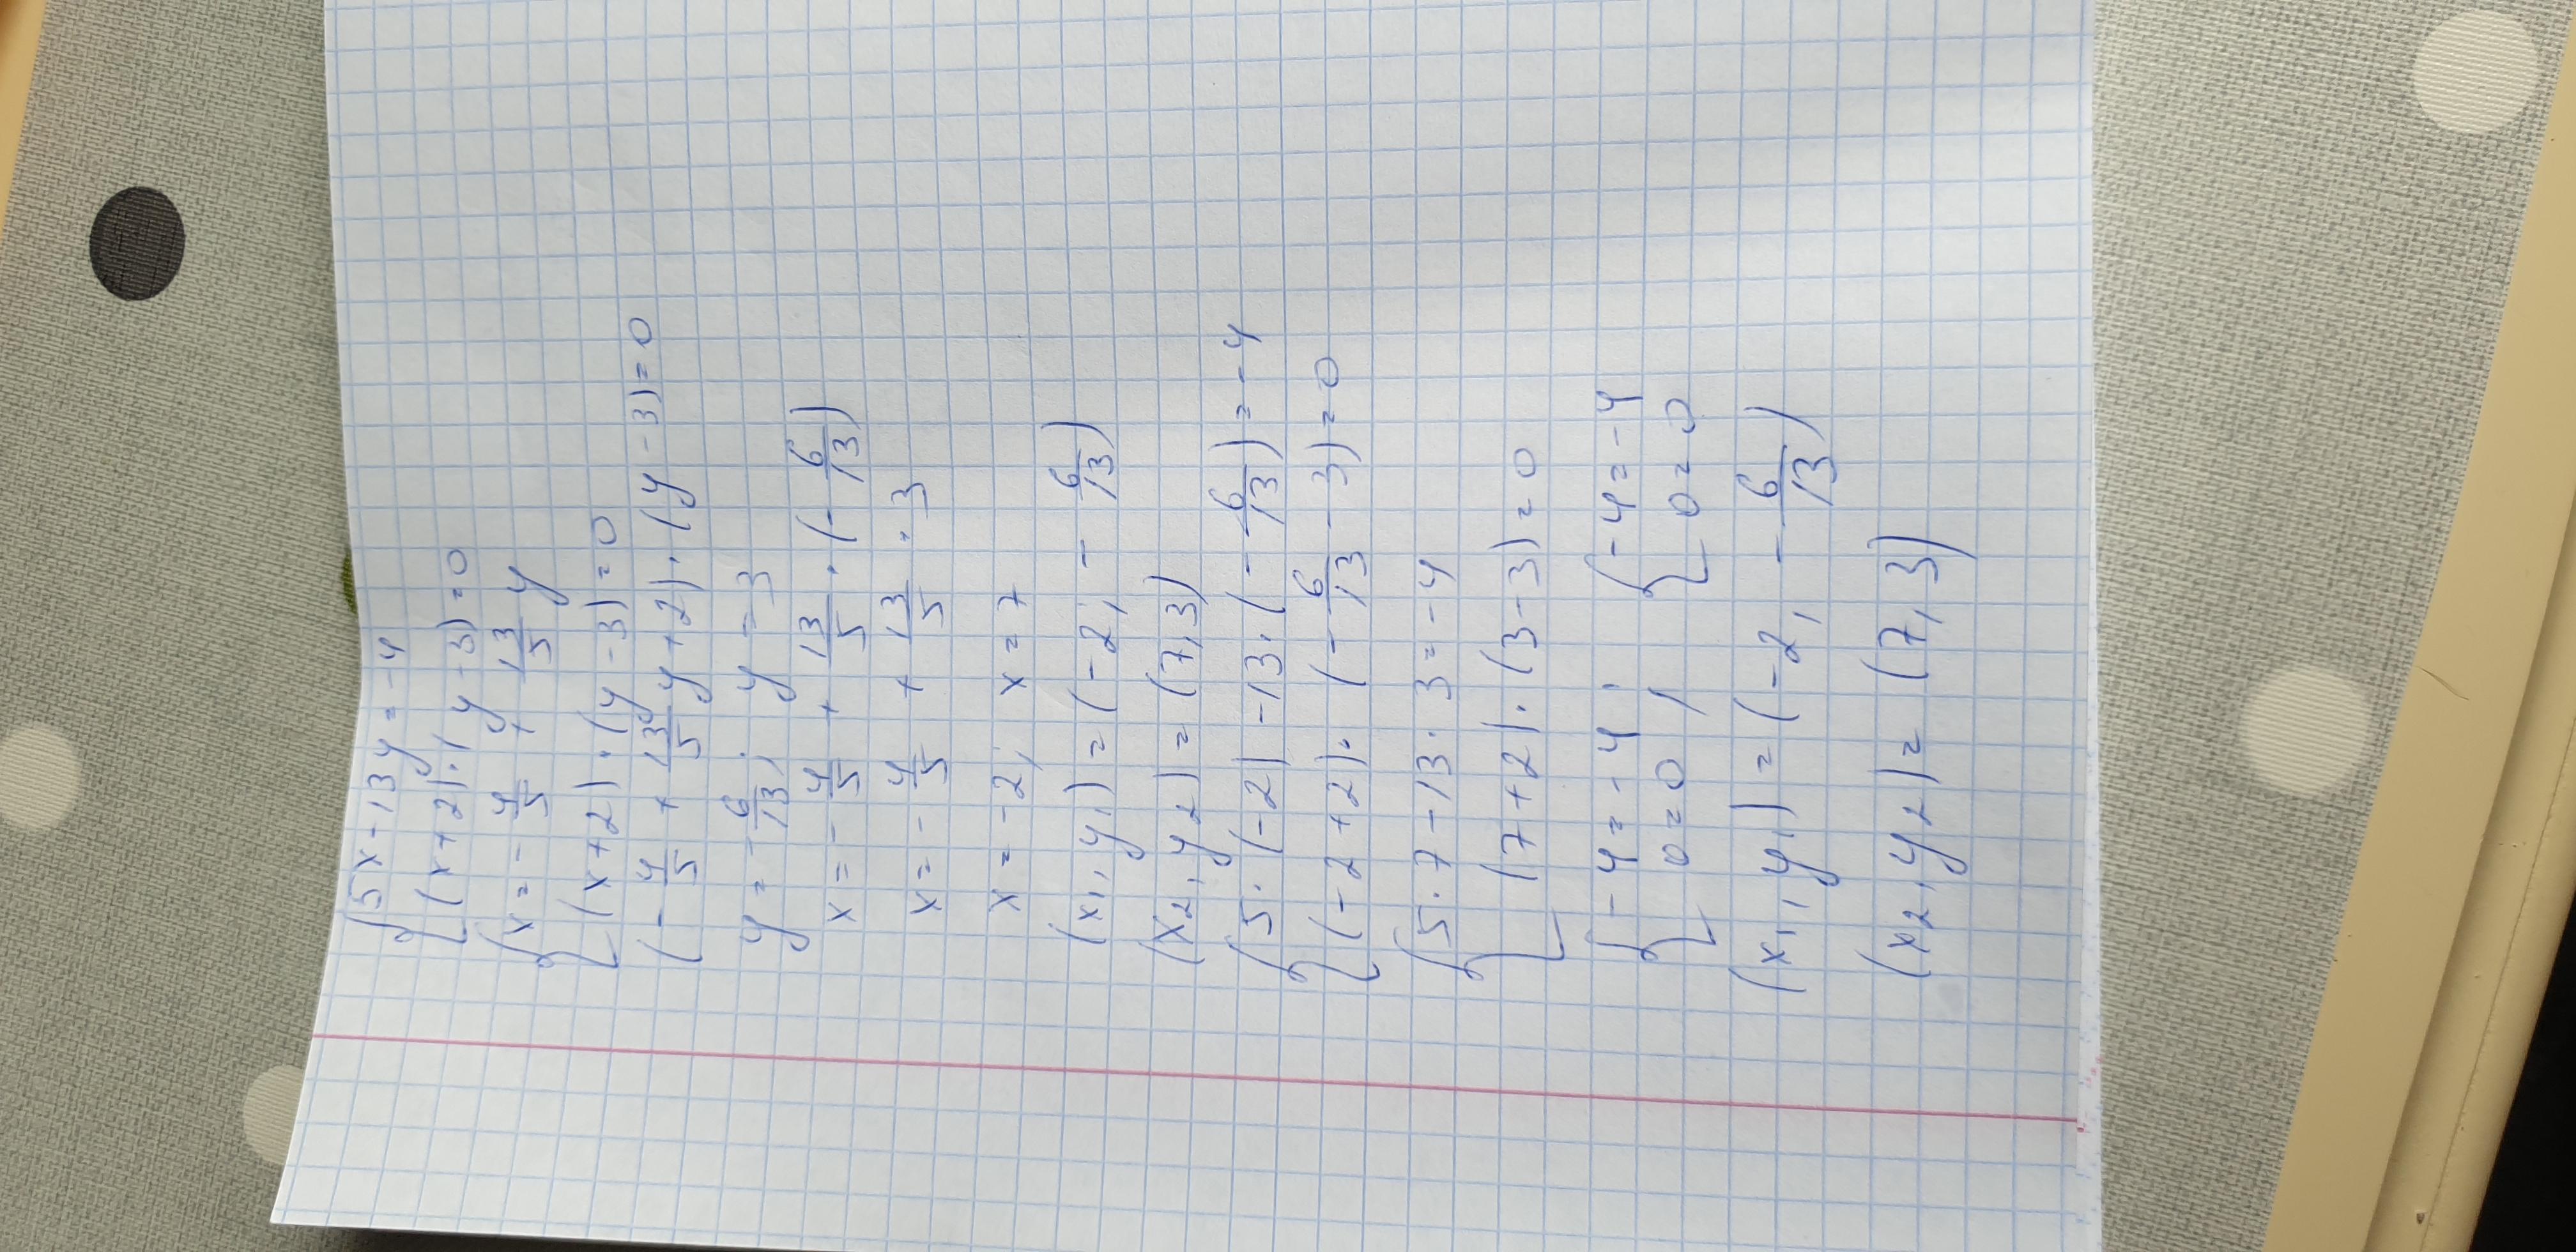 {5x-13y=-4
{(x+2)·(y-3)=0
{x=-4/5+13/5y
{(x+2)·(y-3)=0
(-4/5+13/5y+2)·(y-3)=0
y=-6/13; y=3
x=-4/5+13/5·(-6/13)
x=-4/5+13/5·3
x=-2; x=7
(x₁,y₁)=(-2,-6/13)
(x₂,y₂)=(7,3)
{5·(-2)-13·(-6/13)=-4
{(-2+2)·(-6/13-3)=0
{5·7-13·3=-4
{(7+2)·(3-3)=0
{-4=-4; {-4=-4
{0=0 {0=0
(x₁,y₁)=(-2,-6/13)
(x₂,y₂)=(7,3)